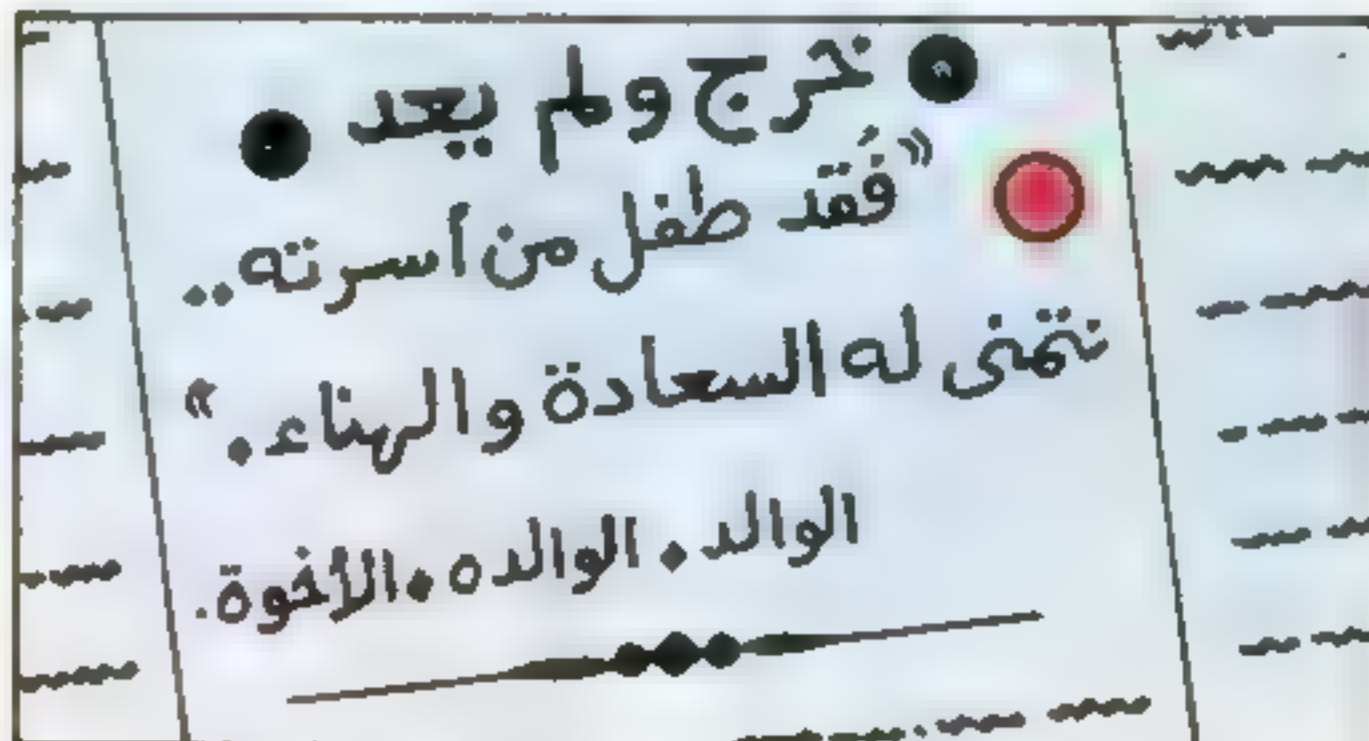 ● خرج ولم يعد ●
«فُقد طفل من أسرته..
نتمنى له السعادة والهناء.»
الوالد. الوالده. الأخوة.